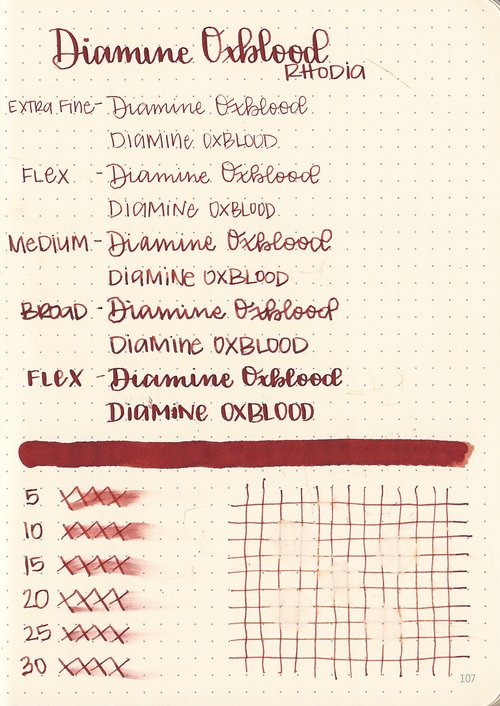 Diamine Oxblood
RHODIA
EXTRA FINE - Diamine Oxblood
DIAMINE OXBLOOD
FLEX - Diamine Oxblood
DIAMINE OXBLOOD
MEDIUM - Diamine Oxblood
DIAMINE OXBLOOD
BROAD - Diamine Oxblood
DIAMINE OXBLOOD
FLEX - Diamine Oxblood
DIAMINE OXBLOOD
5 XXXX
10 XXXX
15 XXXX
20 XXXX
25 XXXX
30 XXXX
107